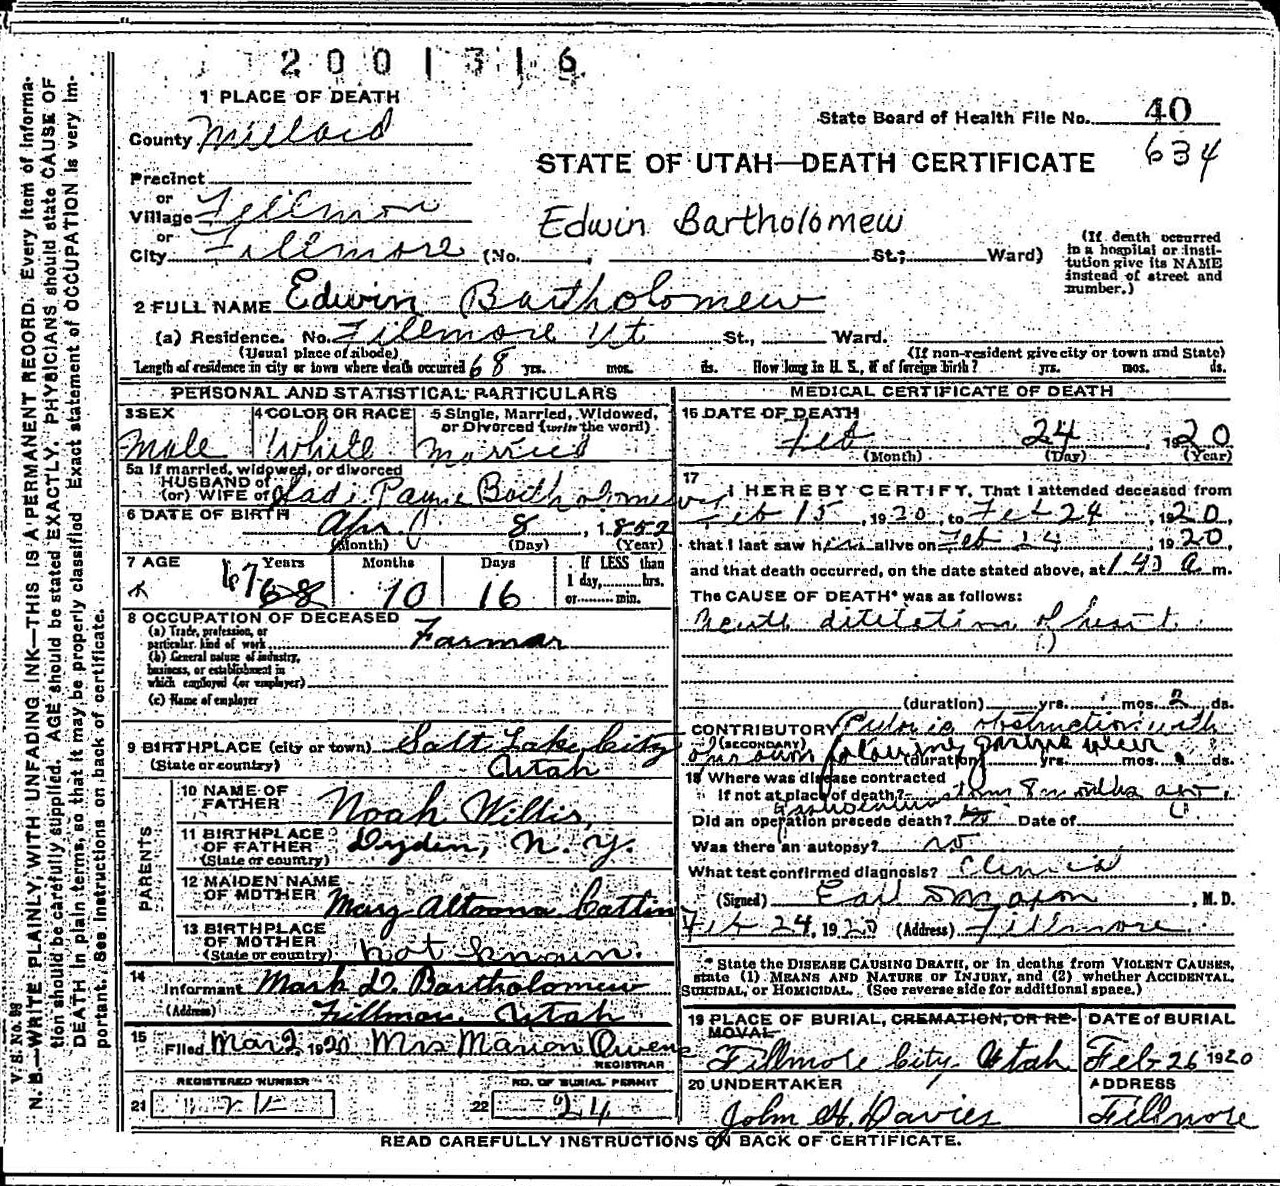 2001316
1 PLACE OF DEATH
County Millard
State Board of Health File No. 40
634
STATE OF UTAH—DEATH CERTIFICATE
Precinct
or
Village Fillmore
Edwin Bartholomew
or
City Fillmore (No. , St.; Ward)
(If death occurred in a hospital or institution give its NAME instead of street and number.)
2 FULL NAME Edwin Bartholomew
(a) Residence. No. Fillmore Ut St., Ward.
(Usual place of abode) (If non-resident give city or town and State)
Length of residence in city or town where death occurred 68 yrs. mos. ds. How long in U. S., if of foreign birth? yrs. mos. ds.
PERSONAL AND STATISTICAL PARTICULARS
3 SEX Male
4 COLOR OR RACE White
5 Single, Married, Widowed, or Divorced (write the word) Married
5a If married, widowed, or divorced
HUSBAND of
(or) WIFE of Payne Bartholomew
6 DATE OF BIRTH Apr. 8, 1852
(Month) (Day) (Year)
7 AGE 67 68 Years 10 Months 16 Days
If LESS than
1 day, hrs.
or min.
8 OCCUPATION OF DECEASED
(a) Trade, profession, or particular kind of work Farmer
(b) General nature of industry, business, or establishment in which employed (or employer)
(c) Name of employer
9 BIRTHPLACE (city or town) Salt Lake City
(State or country) Utah
PARENTS
10 NAME OF FATHER Noah Willis
11 BIRTHPLACE OF FATHER (State or country) Dryden, N. Y.
12 MAIDEN NAME OF MOTHER Mary Altoona Catlin
13 BIRTHPLACE OF MOTHER (State or country) not known.
14
Informant Mark D. Bartholomew
(Address) Fillmore, Utah
15
Filed Mar 2 1920 Mrs Marion Owens
REGISTRAR
REGISTERED NUMBER
21
NO. OF BURIAL PERMIT
22 24
MEDICAL CERTIFICATE OF DEATH
16 DATE OF DEATH
Feb 24, 1920
(Month) (Day) (Year)
17
I HEREBY CERTIFY, That I attended deceased from
Feb 15, 1920, to Feb 24 1920,
that I last saw him alive on Feb 24 1920,
and that death occurred, on the date stated above, at a m.
The CAUSE OF DEATH* was as follows:
Acute dilitation of heart
(duration) yrs. mos. 2 ds.
CONTRIBUTORY Pyloric obstruction with
(SECONDARY) following gastric ulcer
(duration) yrs. mos. ds.
18 Where was disease contracted
If not at place of death? 8 months ago.
Did an operation precede death? Date of
Was there an autopsy? no
What test confirmed diagnosis? Clinical
(Signed) , M. D.
Feb 24, 1920 (Address) Fillmore
* State the DISEASE CAUSING DEATH, or in deaths from VIOLENT CAUSES,
state (1) MEANS AND NATURE OF INJURY, and (2) whether ACCIDENTAL,
SUICIDAL, or HOMICIDAL. (See reverse side for additional space.)
19 PLACE OF BURIAL, CREMATION, OR REMOVAL
Fillmore City Utah
DATE of BURIAL
Feb 26 1920
20 UNDERTAKER
John H. Davies
ADDRESS
Fillmore
READ CAREFULLY INSTRUCTIONS ON BACK OF CERTIFICATE.
V. S. No. 98
N. B.—WRITE PLAINLY, WITH UNFADING INK—THIS IS A PERMANENT RECORD. Every item of informa-
tion should be carefully supplied. AGE should be stated EXACTLY. PHYSICIANS should state CAUSE OF
DEATH in plain terms, so that it may be properly classified. Exact statement of OCCUPATION is very im-
portant. See instructions on back of certificate.